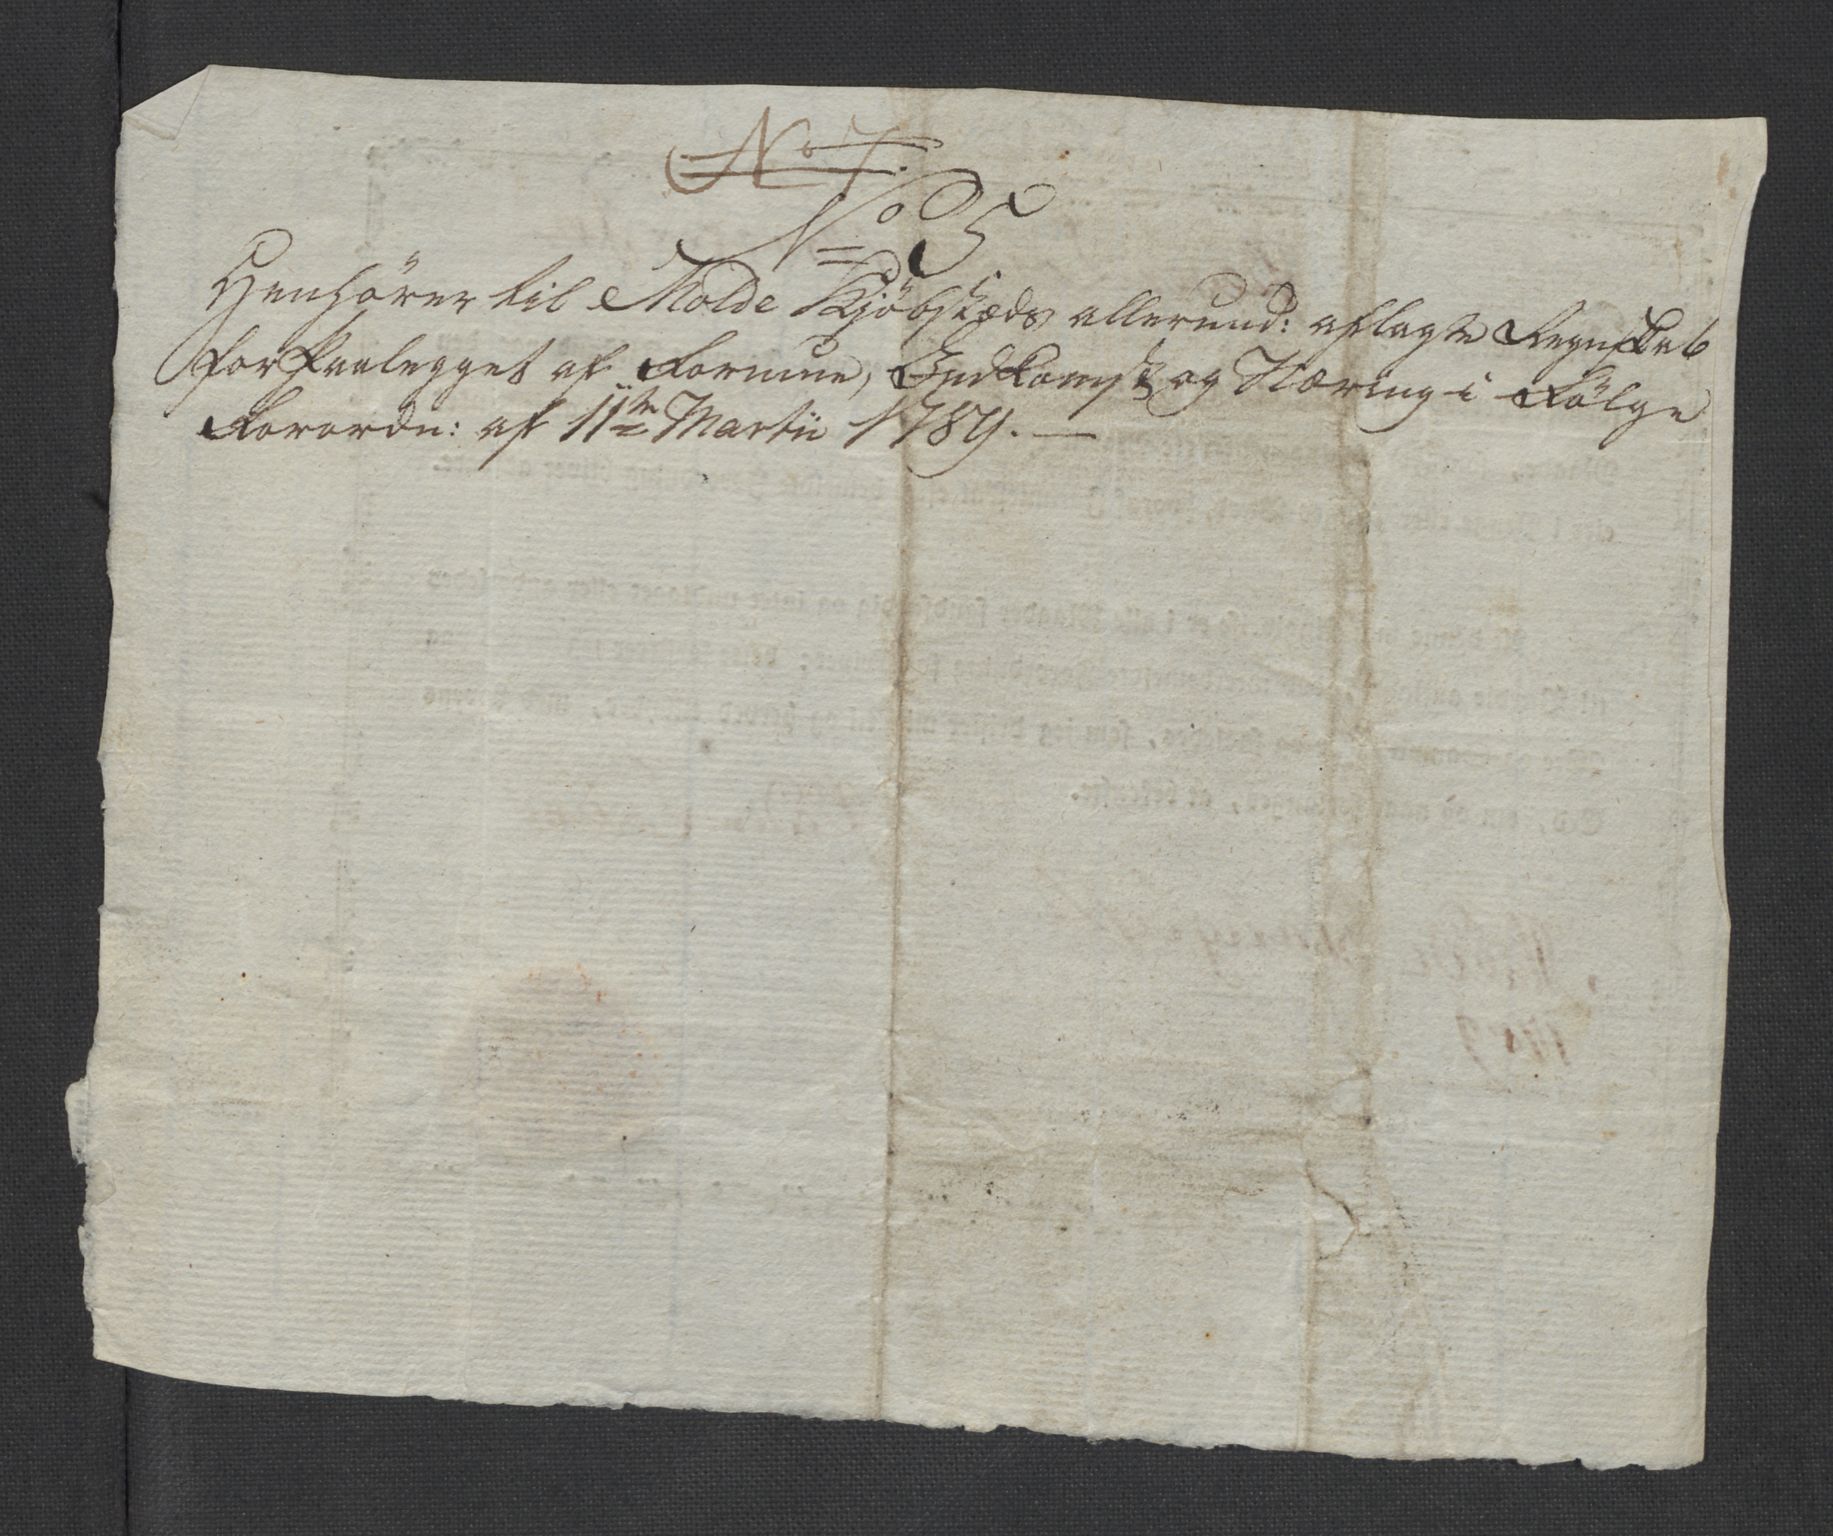 No 7.
No 5
Henhörer til Molde Kjöbstæds allerund: aflagte Regnskab
for Paalegget af Formue, Indkomst og Næring i Fölge
Forordn: af 11te Martii 1789. —